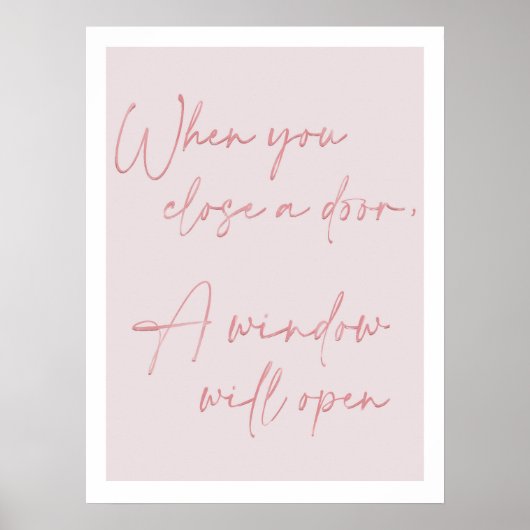 When you
close a door,
A window
will open